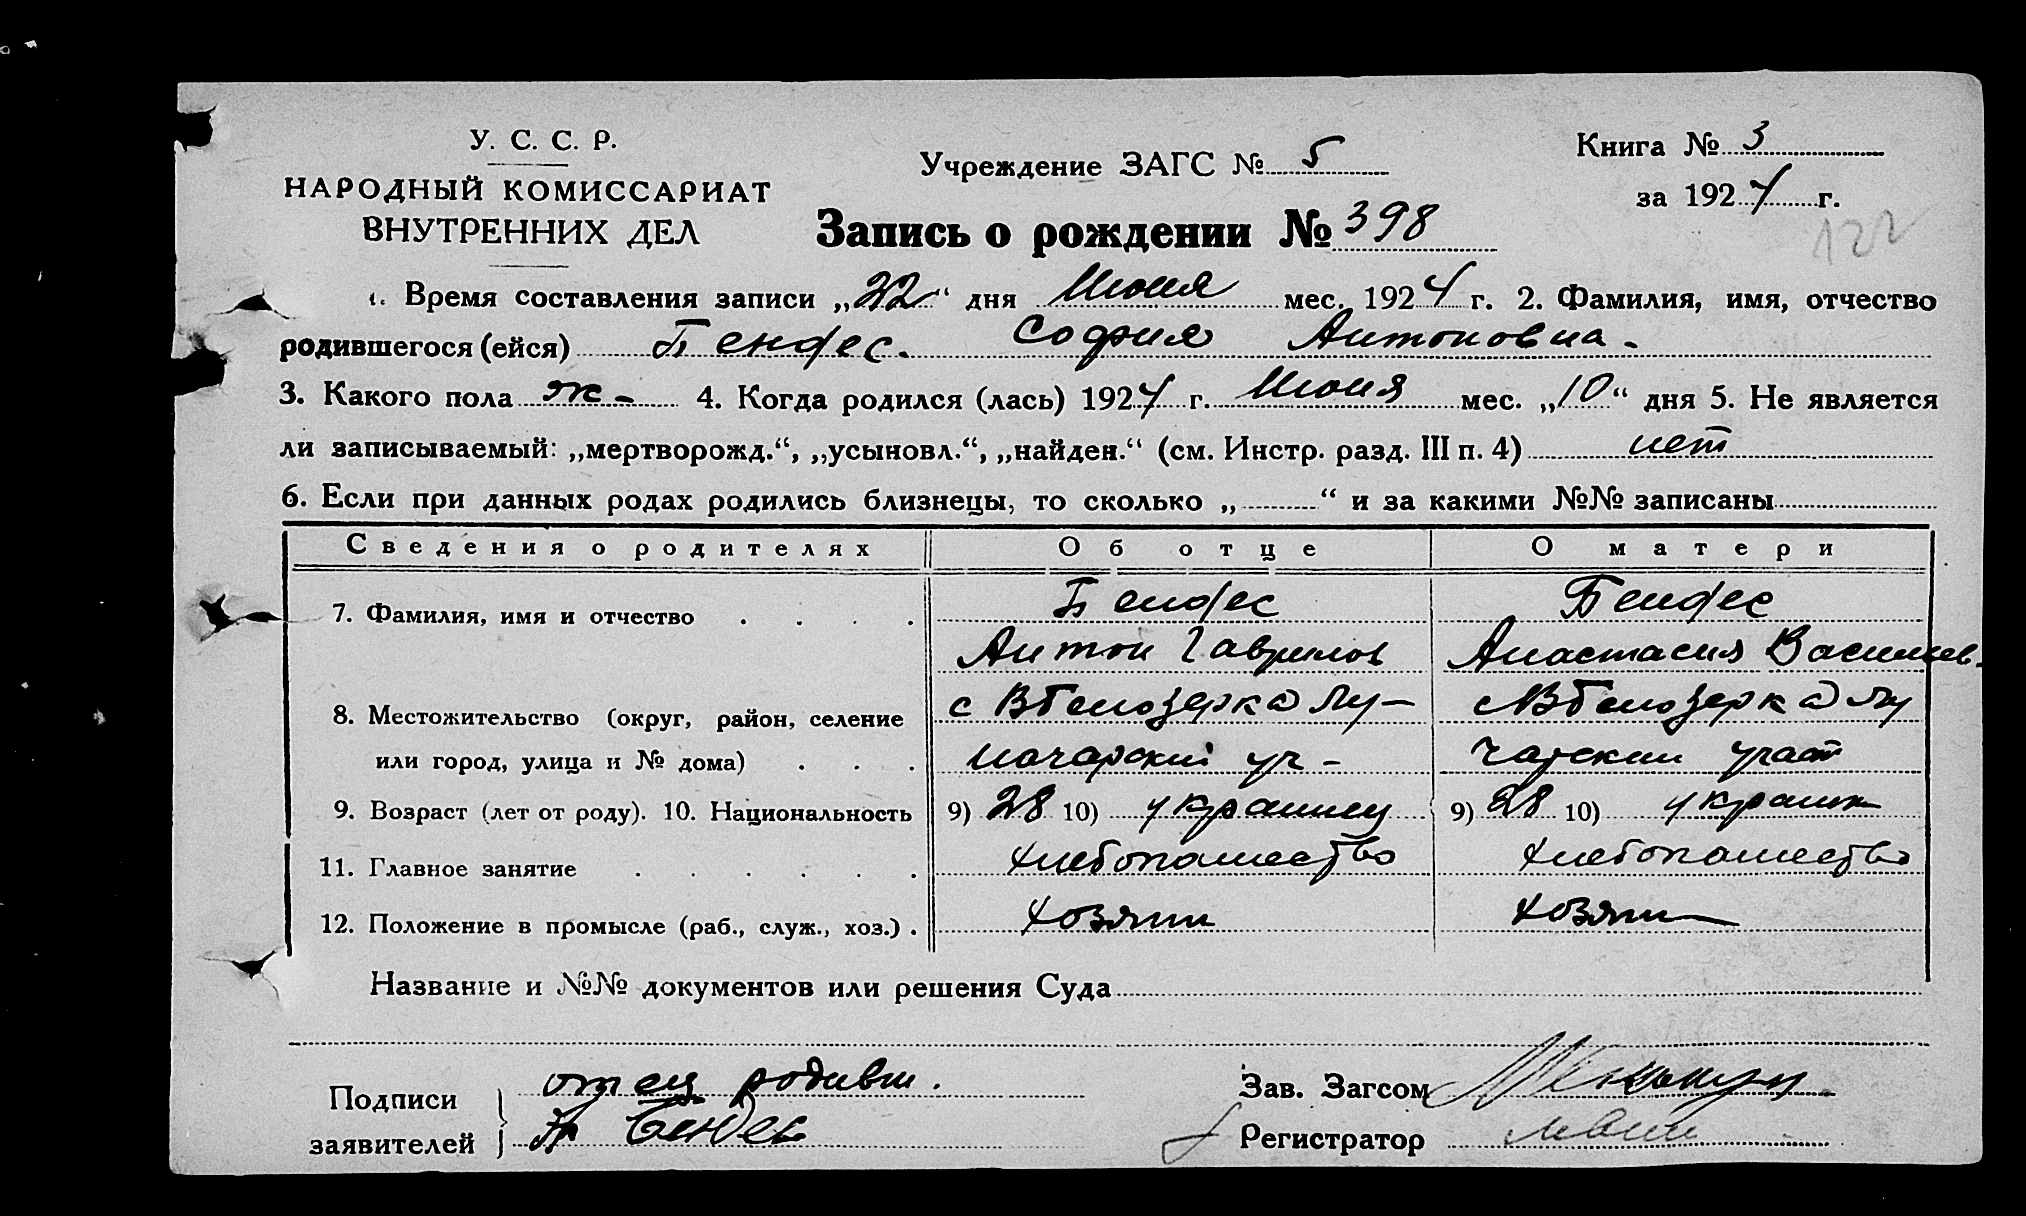 У. С. С. Р.
НАРОДНЫЙ КОМИССАРИАТ
ВНУТРЕННИХ ДЕЛ
Учреждение ЗАГС № 5
Книга № 3
за 1924 г.
122
Запись о рождении № 398
1. Время составления записи „22“ дня Июня мес. 1924 г. 2. Фамилия, имя, отчество
родившегося (ейся) Бендес. София Антоновна.
3. Какого пола ж- 4. Когда родился (лась) 1924 г. Июня мес. „10“ дня 5. Не является
ли записываемый: „мертворожд.“, „усыновл.“, „найден.“ (см. Инстр. разд. III п. 4) нет
6. Если при данных родах родились близнецы, то сколько „ “ и за какими №№ записаны
Сведения о родителях Об отце О матери
7. Фамилия, имя и отчество Бендес Бендес
Антон Гаврилов Анастасия Васильев.
8. Местожительство (округ, район, селение с ВБелозерка Лу- с ВБелозерка Лу
или город, улица и № дома) начарский уч-
9. Возраст (лет от роду). 10. Национальность 9) 28 10) украинец 9) 28 10) украин
11. Главное занятие хлебопашество хлебопашество
12. Положение в промысле (раб., служ., хоз.) хозяин хозяин
Название и №№ документов или решения Суда
Подписи отец родивш.
заявителей Бендес
Зав. Загсом
Регистратор